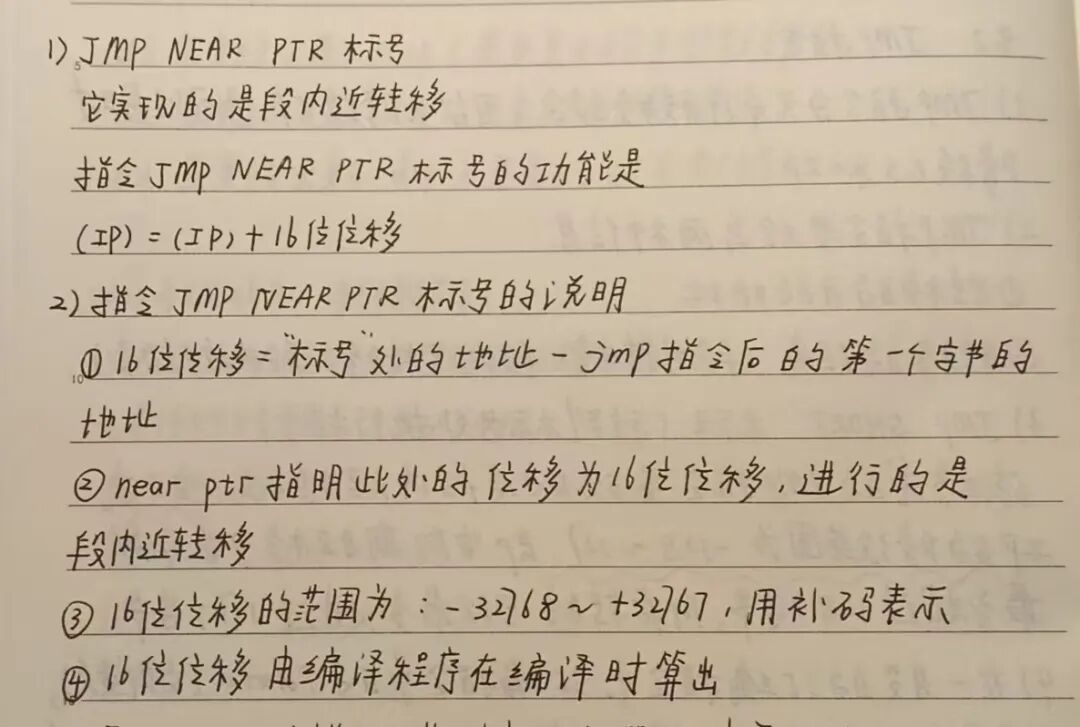 1) JMP NEAR PTR 标号
它实现的是段内近转移
指令 JMP NEAR PTR 标号的功能是
(IP) = (IP) + 16位位移
2) 指令 JMP NEAR PTR 标号的说明
① 16位位移 = "标号"处的地址 - jmp指令后的第一个字节的
地址
② near ptr 指明此处的位移为16位位移,进行的是
段内近转移
③ 16位位移的范围为:-32768~+32767,用补码表示
④ 16位位移由编译程序在编译时算出